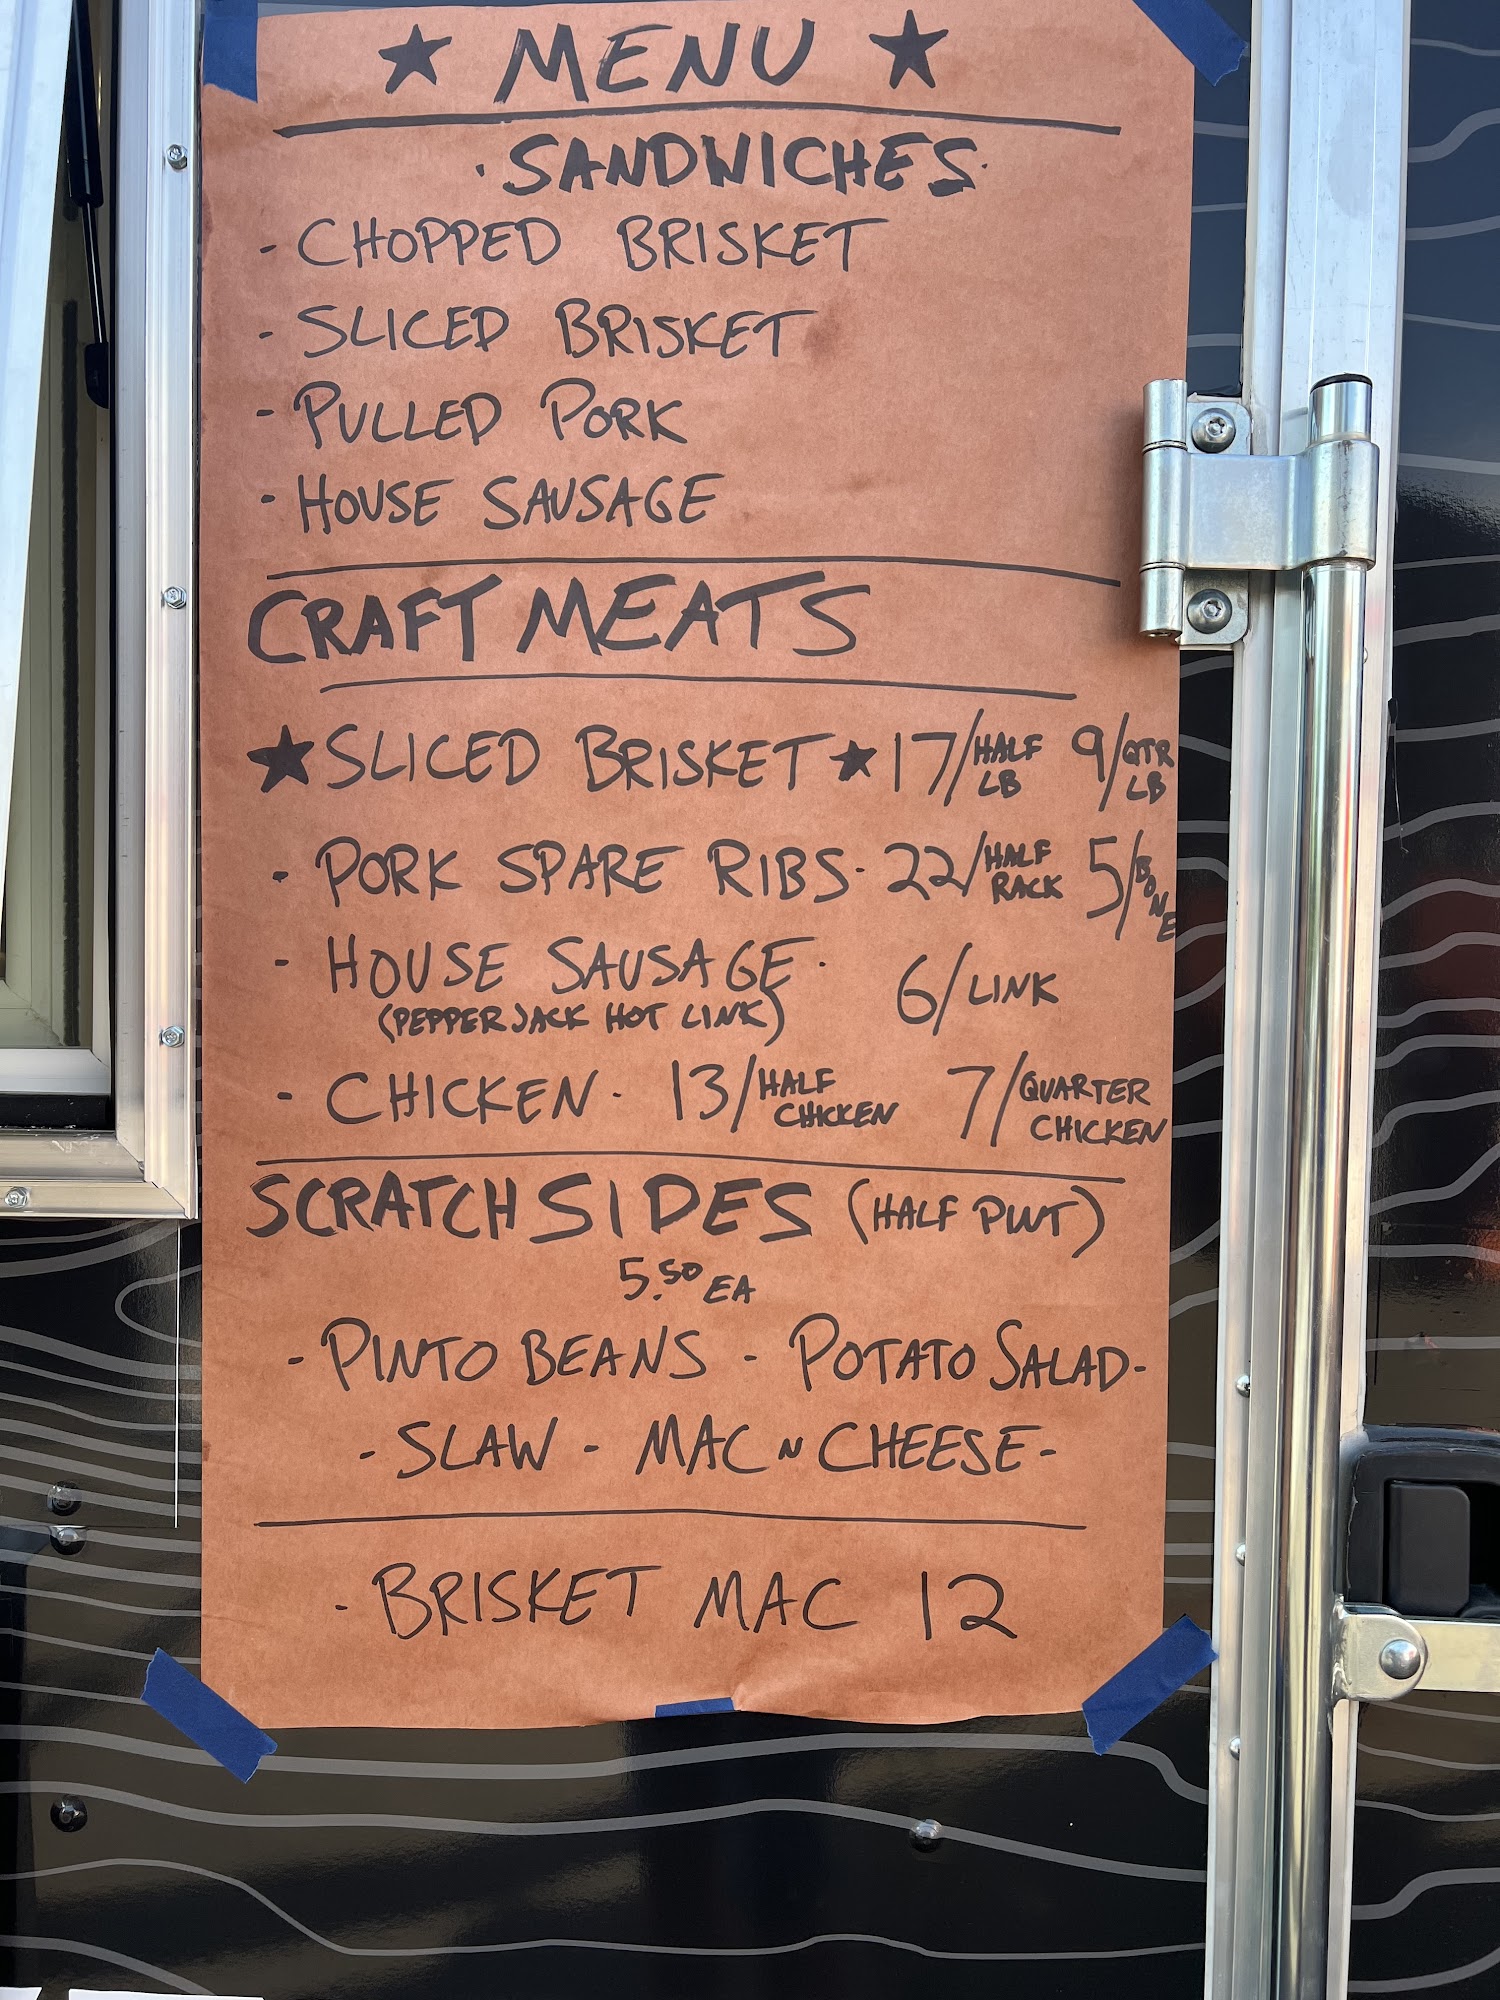 ★ MENU ★
· SANDWICHES ·
- CHOPPED BRISKET
- SLICED BRISKET
- PULLED PORK
- HOUSE SAUSAGE
CRAFT MEATS
★ SLICED BRISKET ★ 17/HALF LB 9/QTR LB
- PORK SPARE RIBS · 22/HALF RACK 5/BONE
- HOUSE SAUSAGE · 6/LINK
(PEPPER JACK HOT LINK)
- CHICKEN · 13/HALF CHICKEN 7/QUARTER CHICKEN
SCRATCH SIDES (HALF PINT)
5.50 EA
- PINTO BEANS - POTATO SALAD -
- SLAW - MAC N CHEESE -
- BRISKET MAC 12